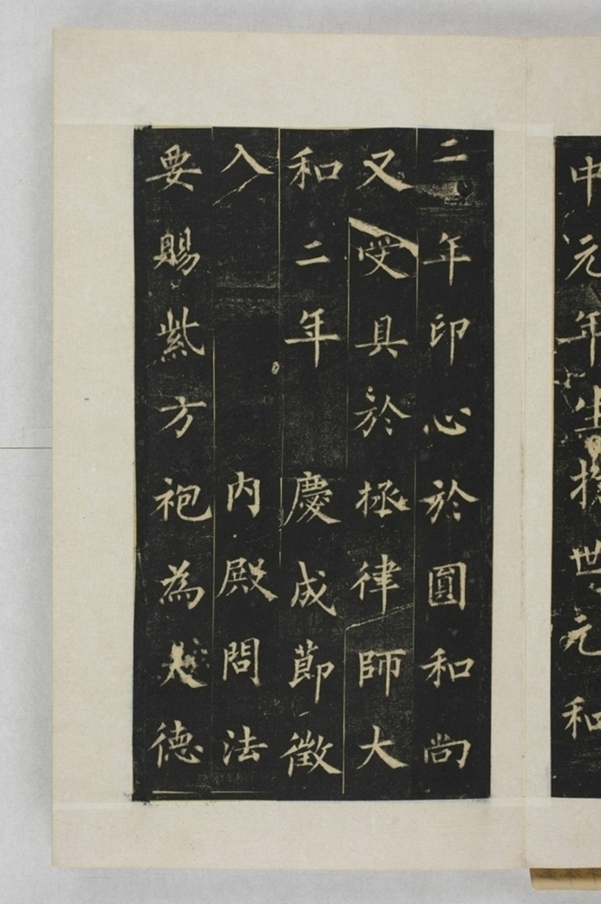 中元年生擔世元和
二年印心於圓和尚
又受具於拯律師大
和二年慶成節徵
入內殿問法
要賜紫方袍為大德